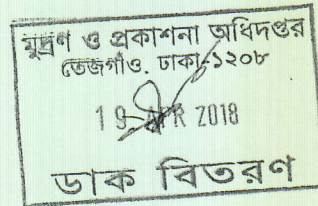 মুদ্রণ ও প্রকাশনা অধিদপ্তর
তেজগাঁও, ঢাকা-১২০৮
19 APR 2018
ডাক বিতরণ